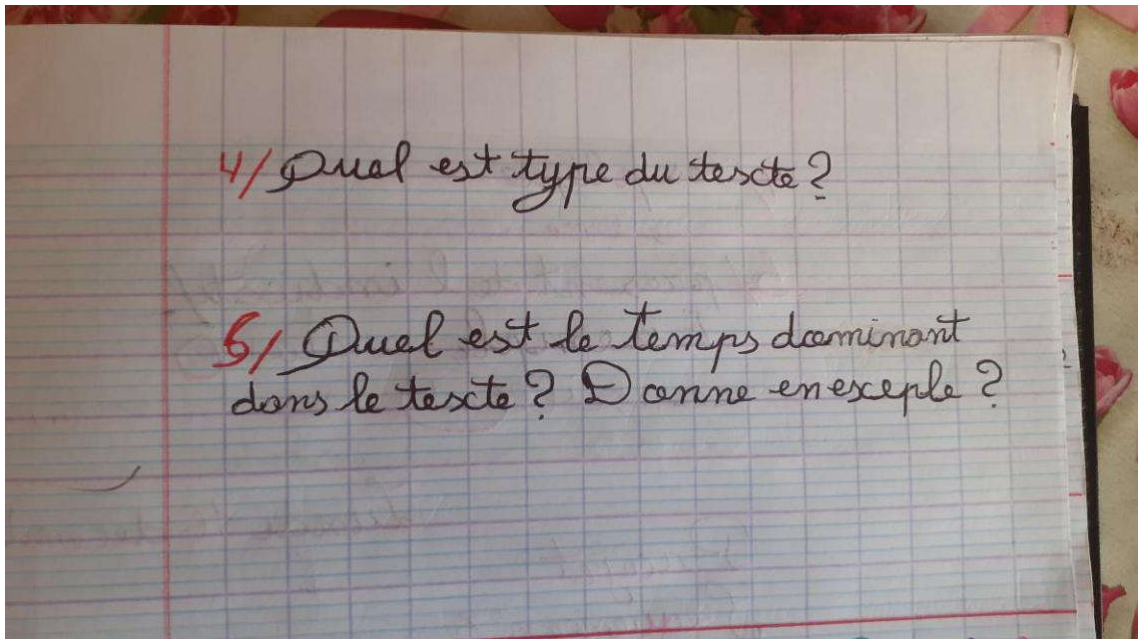 4/ Quel est type du texte ?
5/ Quel est le temps dominant
dans le texte ? Donne en exeple ?